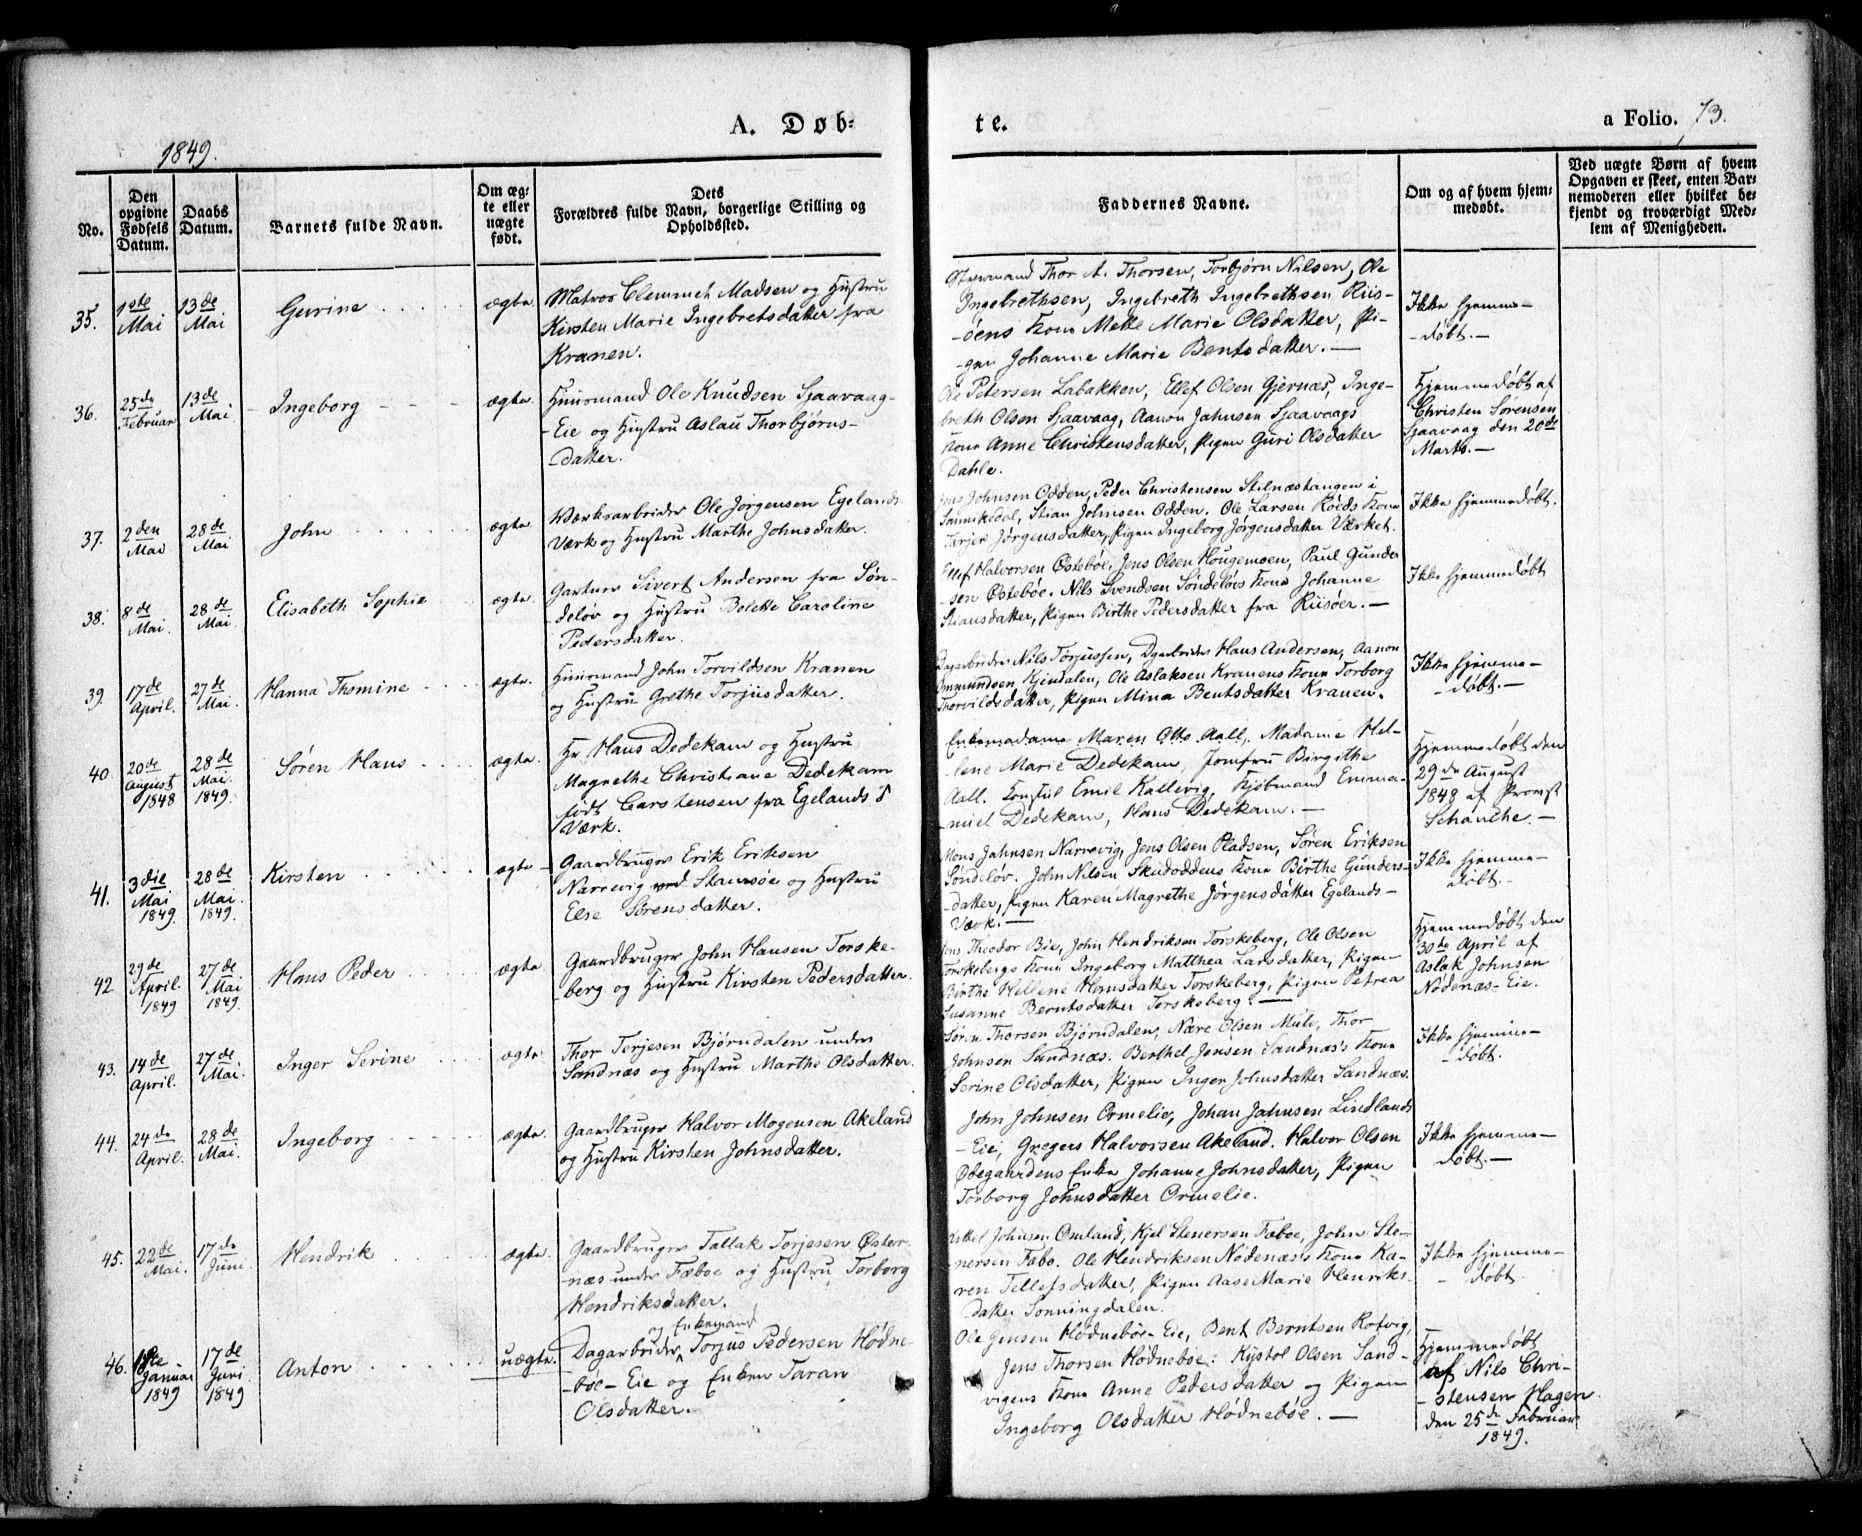 A. Døb-
te.
a Folio. 73.
1849.
No.
Den opgivne Fødsels Datum.
Daabs Datum.
Barnets fulde Navn.
Om ægte eller uægte født.
Dets Forældres fulde Navn, borgerlige Stilling og Opholdssted.
Faddernes Navne.
Om og af hvem hjemmedøbt.
Ved uægte Børn af hvem Opgaven er skeet, enten Barnemoderen eller hvilket bekjendt og troværdigt Medlem af Menigheden.
35.
1ste Mai
13de Mai
Gurine
ægte.
Matros Clemmet Madsen og Hustru
Kirsten Marie Ingebretsdatter fra
Kranen.
Styrmand Thor A. Thorsen, Torbjørn Nilsen, Ole
Ingebrethsen, Ingebreth Ingebrethsen Riis-
-öens Kone Mette Marie Olsdatter, Pi-
-gen Johanne Marie Bentsdatter. —
Ikke hjemme-
-døbt. —
36.
25de Februar
13de Mai
Ingeborg
ægte.
Huusmand Ole Knudsen Sjaavaag-
-Eie og Hustru Aslau Thorbjørns-
-datter.
Ole Petersen Labakken, Ellef Olsen Gjernæs, Inge-
breth Olsen Sjaavaag, Aanon Jahnsen Sjaavaags
Kone Anne Christensdatter, Pigen Guri Olsdatter
Dahle.
Hjemmedøbt af
Christen Sørensen
Sjaavaag den 20de
Marts. —
37.
2den Mai
28de Mai
John
ægte.
Værksarbeider Ole Jørgensen Egelands
Værk og Hustru Marthe Johnsdatter.
Jens Johnsen Odden, Peder Christensen Stilnæstangen i
Sannikedal, Stian Johnsen Odden. Ole Larsen Röeds Kone
Tarjer Jørgensdatter, Pigen Ingeborg Jørgensdatter Værket.
Ikke hjemmedøbt.
38.
8de Mai.
28de Mai.
Elisabeth Sophie
ægte.
Gartner Sivert Andersen fra Søn-
-deløv og Hustru Bolette Caroline
Pedersdatter.
Ellef Halvorsen Östebøe, Jens Olsen Hougemoen, Paul Gunder
-sen Östebøe. Nils Svendsen Söndeløvs Kone Johanne
Stiansdatter, Pigen Birthe Pedersdatter fra Riisöer. —
Ikke hjemmedøbt
39.
17de April.
27de Mai.
Hanna Thomine
ægte.
Huusmand John Torvildsen Kranen
og Hustru Grethe Torjusdatter.
Dagarbeider Nils Torjussen, Dgarbeider Hans Andersen, Aanon
Ommundsen Kjendalen, Ole Aslaksen Kranens Kone Torborg
Thorvildsdatter, Pigen Mina Bentsdatter Kranen.
Ikke hjemme-
-døbt. —
40.
20de August 1848
28de Mai. 1849.
Søren Hans
ægte.
Hr. Hans Dedekam og Hustru
Magrethe Christiane Dedekam
født Carstensen fra Egelands
Værk.
Enkemadame Maren Otto Aall, Madame Hel-
-lene Marie Dedekam, Jomfru Birgithe
Aall. Konsul Emil Kallevig, Kjöbmand Emma-
-nuel Dedekam, Hans Dedekam. —
Hjemmedøbt den
29de August
1848 af Provst
Schanche. —
41.
3die Mai 1849.
28de Mai. 1849.
Kirsten
ægte
Gaardbruger Erik Eriksen
Narrevig ved Stansøe og Hustru
Else Sørensdatter.
Mons Jahnsen Narrevig, Jens Olsen Pladsen, Søren Eriksen
Söndelöv. John Nilsen Skudoddens Kone Birthe Gunders-
-datter, Pigen Karen Magrethe Jørgensdatter Egelands-
Værk. —
Ikke hjemme-
døbt. —
42
29de April. 1849
27de Mai 1849.
Hans Peder
ægte.
Gaardbruger John Hansen Torske-
-berg og Hustru Kirsten Pedersdatter.
Jens Theodor Bie, John Hendriksen Torskeberg, Ole Olsen
Torskebergs Kone Ingeborg Matthea Larsdatter, Pigen
Birthe Hellene Hansdatter Torskeberg, Pigen Petrea
Susanne Berntsdatter Torskeberg. —
Hjemmedøbt den
30te April af
Aslak Johnsen
Nödenæs-Eie.
43.
14de April.
27de Mai.
Inger Serine
ægte.
Thor Terjesen Bjørndalen under
Sandnæs og Hustru Marthe Olsdatter.
Søren Thorsen Bjørndalen, Nære Olsen Mule, Thor
Johnsen Sandnæs. Berthel Jensen Sandnæs's Kone
Serine Olsdatter, Pigen Inger Johnsdatter Sandnæs.
Ikke hjemme-
-døbt.
44.
24de April.
28de Mai.
Ingeborg
ægte.
Gaardbruger Halvor Mogensen Akeland
og Hustru Kirsten Johnsdatter.
John Johnsen Ormelie, Johan Jahnsen Lindlands
-Eie, Gregers Halvorsen Akeland. Halvor Olsen
Ödegaardens Enke Johanne Johnsdatter, Pigen
Torborg Johnsdatter Ormelie.
Ikke hjemme-
døbt. —
45.
22de Mai.
17de Juni.
Hendrik
ægte.
Gaardbruger Tallak Torjesen Öster-
-næs under Fæboe og Hustru Torborg
Hendriksdatter.
Kittel Johnsen Omland, Kjel Stenersen Fæboe, John Ste-
nersen Fæbo. Ole Hendriksen Nödenæs's Kone Ka-
ren Tellefsdatter, Pigen Aase Marie Henriks-
datter Sonningdalen.
Ikke hjemme-
- døbt.
46.
1ste Januar 1849
17de Juni 1849
Anton
uægte.
og Enkemand
Dagarbeider Torjus Pedersen Hødne-
-böe-Eie og Enken Taran
Olsdatter.
Ole Jensen Hødnebøe-Eie, Bent Berntsen Rotvig,
Jens Thorsen Hødnebøe: Kystol Olsen Sand-
vigens Kone Anne Pedersdatter og Pigen
Ingeborg Olsdatter Hødnebøe. —
Hjemmedøbt
af Nils Chri-
-stensen Hagen
den 25de Februar
1849.